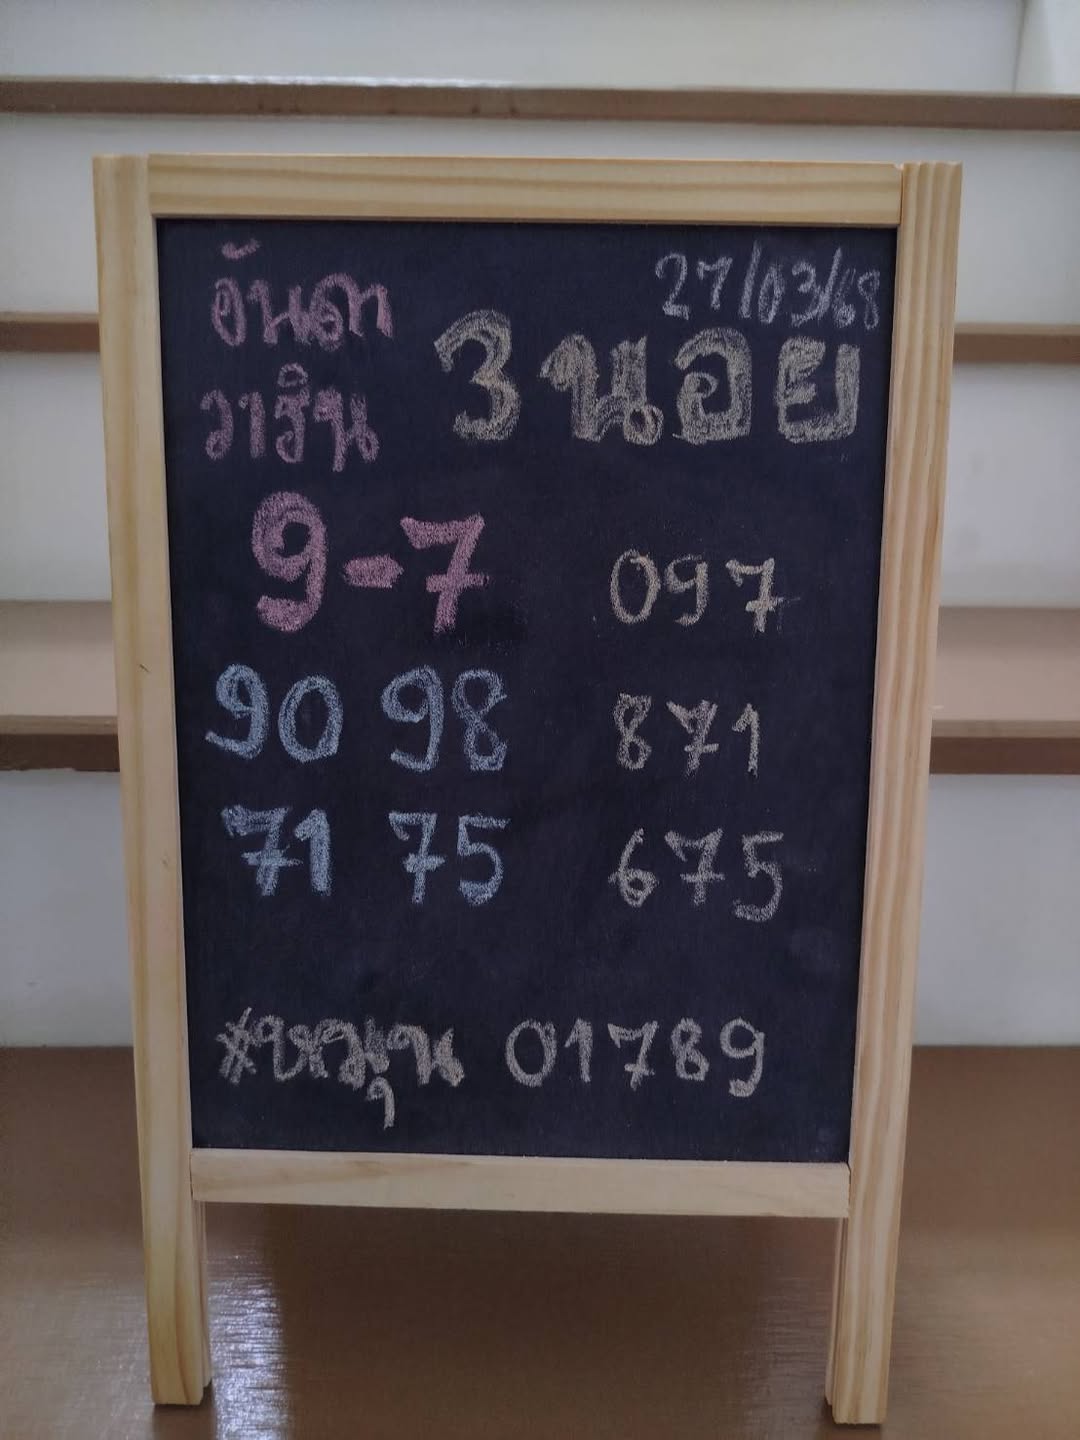 อันดา
วาริน
27/03/68
ฮานอย
9-7
097
90 98
871
71 75
675
#หมุน 01789